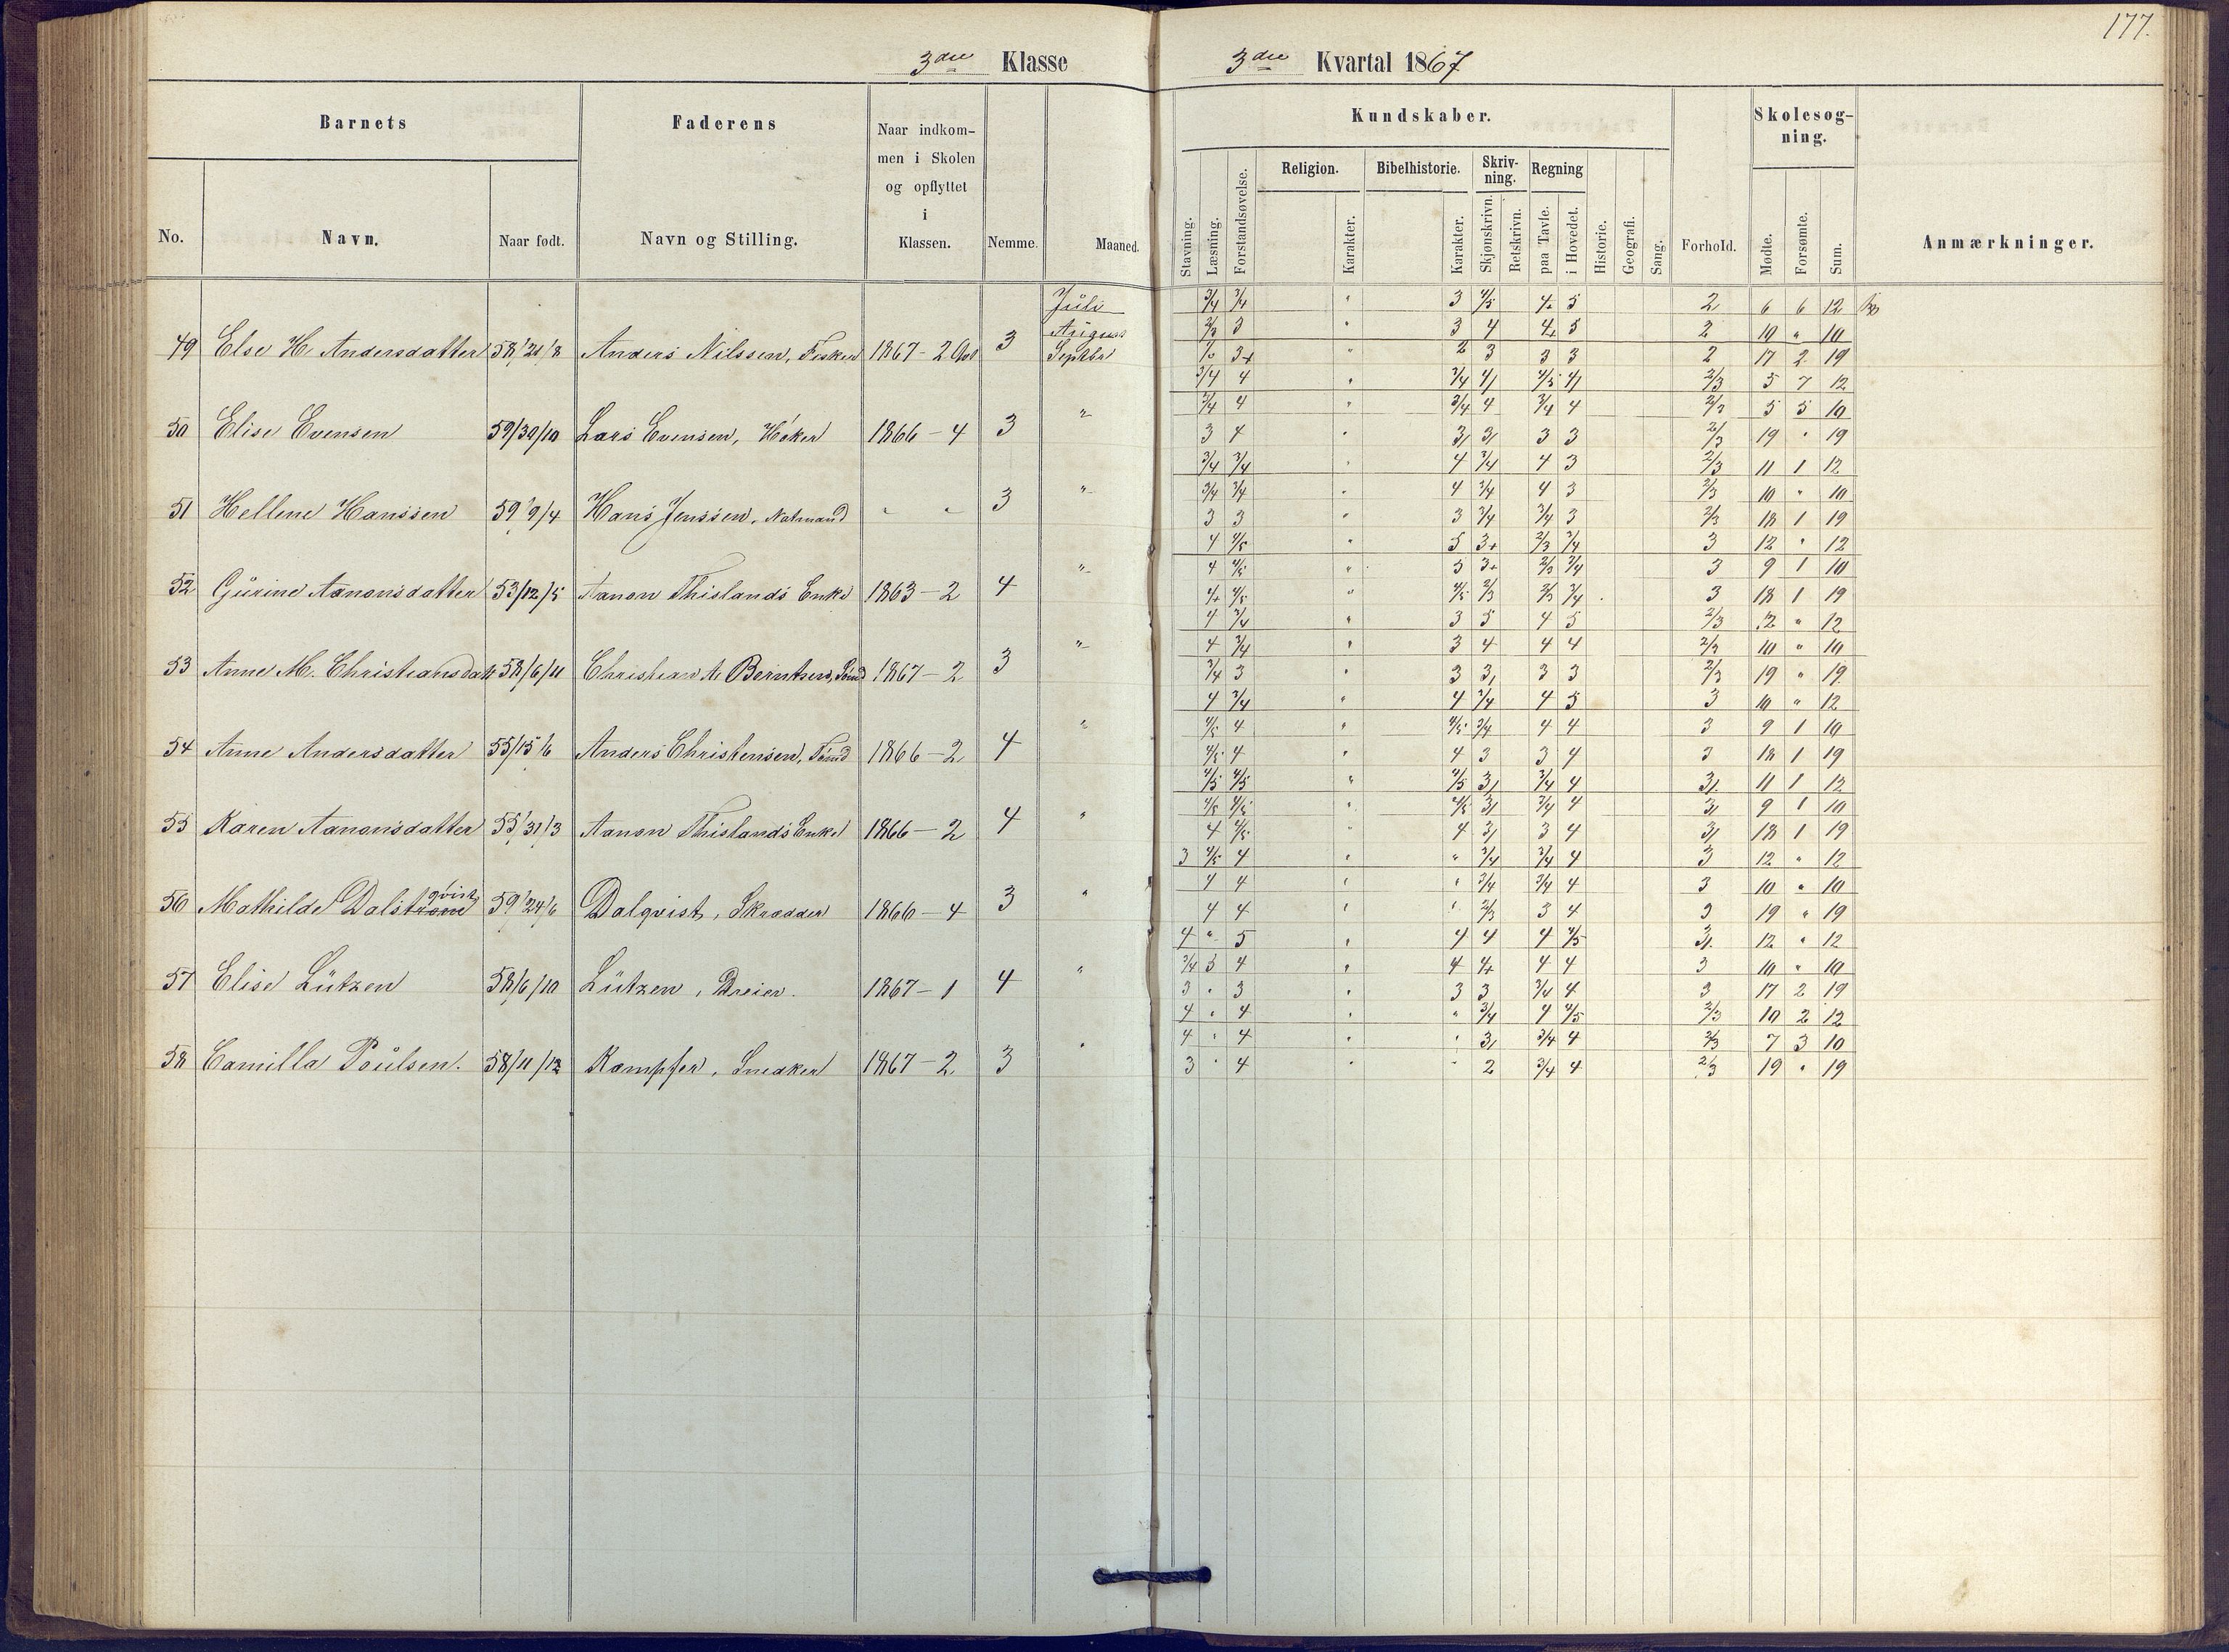 177.
3die Klasse
3die Kvartal 1867
Barnets
Faderens
Naar indkom-
men i Skolen
og opflyttet
i
Klassen.
Nemme.
Maaned.
No.
Navn.
Naar født.
Navn og Stilling.
Kundskaber.
Stavning.
Læsning.
Forstandsøvelse.
Religion.
Karakter.
Bibelhistorie.
Karakter.
Skriv-
ning.
Skjønskrivn.
Retskrivn.
Regning
paa Tavle.
i Hovedet.
Historie.
Geografi.
Sang.
Forhold.
Skolesøg-
ning.
Mødte.
Forsømte.
Sum.
Anmærkninger.
Juli 3/4 3/4 " 3 4/5 4+ 5 2 6 6 12
August 2/3 3 " 3 4 4+ 5 2 10 " 10
49 Else H. Andersdatter 58/21/8 Anders Nilssen, Fisker 1867 - 2 3 Septbr 3+ " 2 3 3 3 2 17 2 19
3/4 4 " 3/4 4/ 4/5 4/ 2/3 5 7 12
3/4 4 " 3/4 4 3/4 4 2/3 5 5 10
50 Elise Evensen 59/30/10 Lars Evensen, Høker 1866 - 4 3 " 3 4 " 3/ 3/ 3 3 2/3 19 " 19
3/4 3/4 " 4 3/4 4 3 2/3 11 1 12
3/4 3/4 " 4 3/4 4 3 2/3 10 " 10
51 Hellene Hanssen 59/9/4 Hans Jenssen, Natmand " " 3 " 3 3 " 3 3/4 3/4 3 2/3 18 1 19
4 4/5 " 5 3+ 2/3 3/4 3 12 " 12
4 4/5 " 5 3+ 2/3 3/4 3 9 1 10
52 Gurine Aanonsdatter 53/12/5 Aanon Thislands Enke 1863 - 2 4 " 4+ 4/5 " 4/5 2/3 2/3 3/4 3 18 1 19
4 3/4 " 3 5 4 5 2/3 12 " 12
4 3/4 " 3 4 4 4 2/3 10 " 10
53 Anne M. Christiansdatt 58/6/11 Christian A. Berntsen, Tømd 1867 - 2 3 " 3/4 3 " 3 3/ 3 3 2/3 19 " 19
4 3/4 " 4 3/4 4 5 3 10 " 12
4/5 4 " 4/5 3/4 4 4 3 9 1 10
54 Anne Andersdatter 55/15/6 Anders Christensen, Tømd 1866 - 2 4 " 4/5 4 " 4 3 3 4 3 18 1 19
4/5 4/5 " 4/5 3/ 3/4 4 3/ 11 1 12
4/5 4/5 " 4/5 3/ 3/4 4 3/ 9 1 10
55 Karen Aanonsdatter 55/31/3 Aanon Thislands Enke 1866 - 2 4 " 4 4/5 " 4 3/ 3 4 3/ 18 1 19
3 4/5 4 " " 3/4 3/4 4 3 12 " 12
4 4 " " 3/4 3/4 4 3 10 " 10
qvist
56 Mathilde Dalstrøm 59/24/6 Dalqvist, Skrædder 1866 - 4 3 " 4 4 " " 2/3 3 4 3 19 " 19
4 " 5 " 4 4 4 4/5 3/ 12 " 12
3/4 3 4 " 4 4+ 4 4 3 10 " 10
57 Elise Lützen 58/6/10 Lützen, Dreier. 1867 - 1 4 " 3 " 3 " 3 3 3/4 4 3 17 2 19
4 " 4 " " 3/4 4 4/5 2/3 10 2 12
4 " 4 " " 3/ 3/4 4 2/3 7 3 10
58 Camilla Poulsen. 58/11/12 Kampfer, Snedker 1867 - 2 3 " 3 " 4 " " 2 3/4 4 2/3 19 " 19